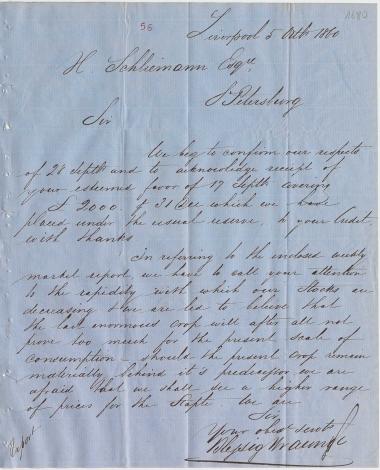 56
Liverpool 5 Octb 1860
H. Schliemann Esqre
St Petersburg
Sir
We beg to confirm our respects
of 28 Septbr and to acknowledge receipt of
your esteemed favor of 17 Septbr covering
£ 2000. at 31 Dec which we have
placed under the usual reserve, to your Credit
with thanks
In referring to the enclosed weekly
market report, we have to call your attention
to the rapidity with which our Stocks are
decreasing & we are led to believe that
the last enormous Crop will after all not
prove too much for the present scale of
consumption - should the present Crop remain
materially behind it's predecessor, we are
afraid that we shall see a higher range
of prices for the Staple. We are
Sir
Your obedt servts